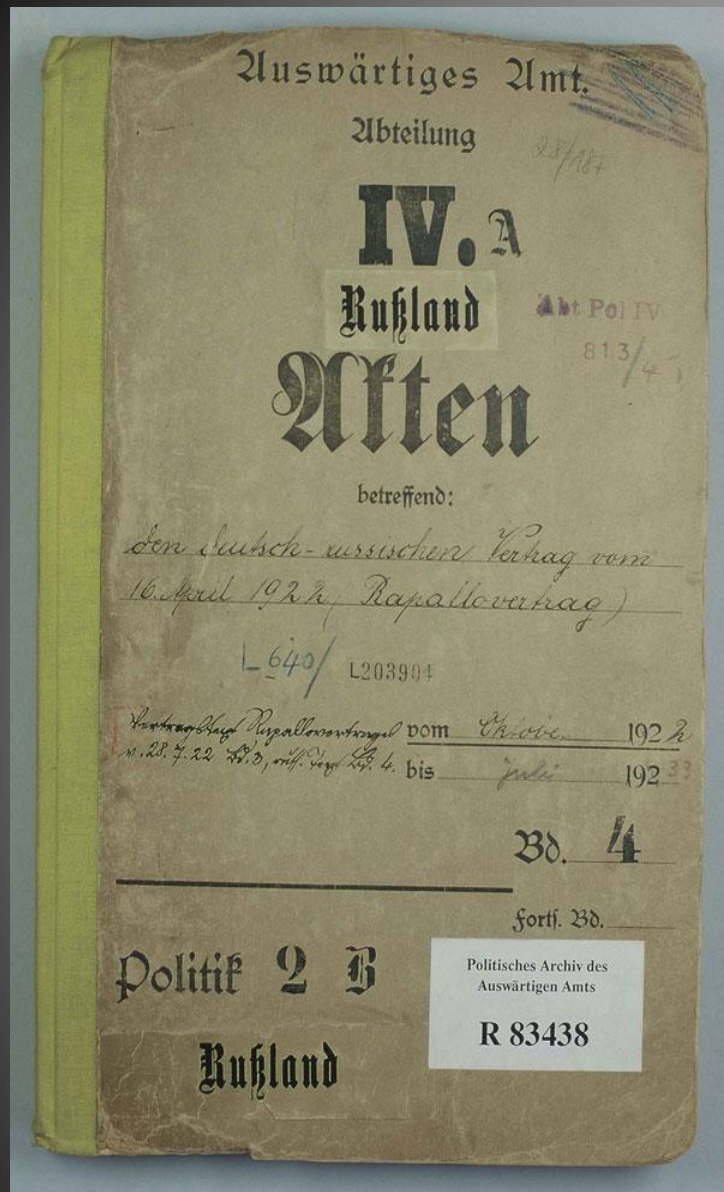 Auswärtiges Amt.
Abteilung
28/187
IV. A
Rußland
Abt Pol IV
813/4
Akten
betreffend:
den deutsch-russischen Vertrag vom
16. April 1922 (Rapallovertrag)
L 640/ L203904
Rapallovertrages vom Oktober 1922
v. 28.7.22 Bd. 3, russ. Bd. 4. bis Juli 1933
Bd. 4
Forts. Bd.
Politik 2 B
Rußland
Politisches Archiv des
Auswärtigen Amts
R 83438